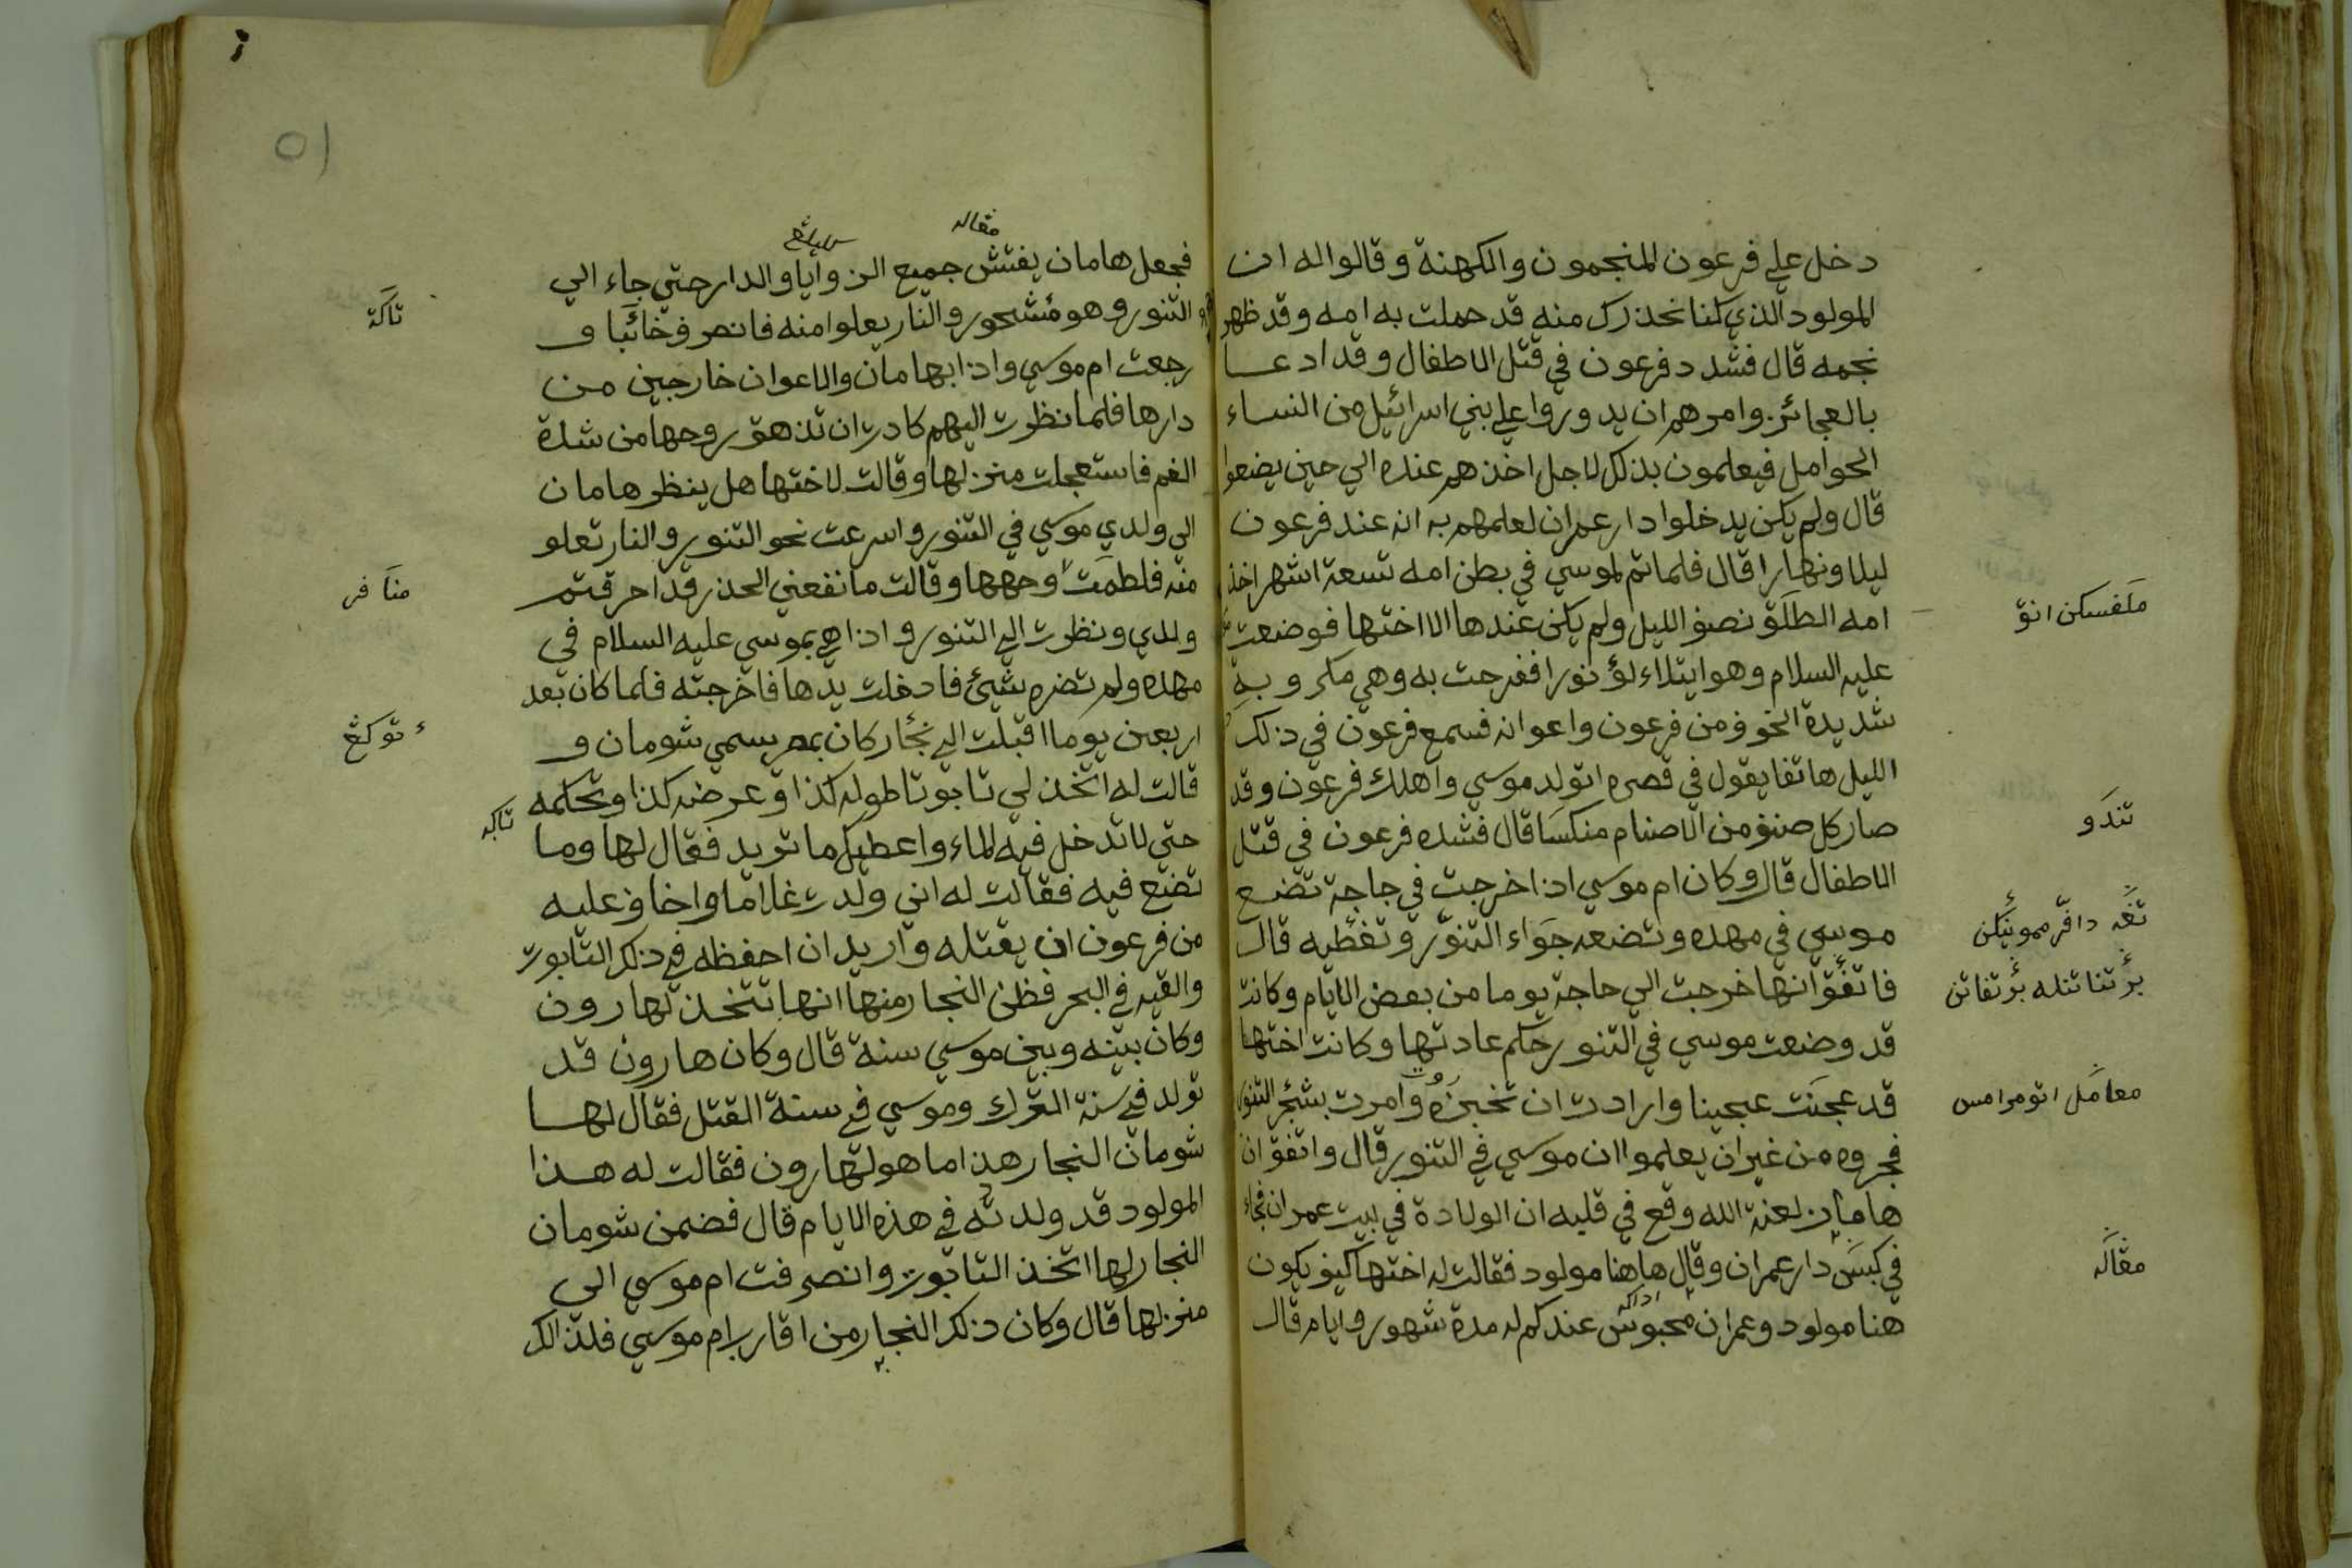 دخل علي فرعون المنجمون والكهنة وقالوا له ان
المولود الذي كنا نحذرك منه قد حملت به امه وقد ظهر
نجمه قال فشدد فرعون في قتل الاطفال وقد ادعا
بالعجائز وامرهم ان يدوروا علي بني اسرائيل من النساء
الحوامل فيعلمون بذلك لاجل اخذهم عنده الي حين يضعوا
قال ولم يكن يدخلوا دار عمران لعلمهم به انه عند فرعون
ليلا ونهارا قال فلما تم لموسي في بطن امه تسعة اشهر اخذ
امه الطلق نصف الليل ولم يكن عندها الا اختها فوضعت
عليه السلام وهو ايتلاء لؤ نورا ففرحت به وهي مكروبة
شديدة الخوف من فرعون واعوانه فسمع فرعون في ذلك
الليل هاتفا يقول في قصره اتولد موسي واهلك فرعون وقد
صار كل صنف من الاصنام منكسا قال فشده فرعون في قتل
الاطفال قال وكان ام موسي اذا خرجت في حاجة تضع
موسي في مهده وتضعه جواء التنور وتغطيه قال
فاتفق انها خرجت الي حاجة يوما من بعض الايام وكانت
قد وضعت موسي في التنور حكم عادتها وكانت اختها
قد عجنت عجينا وارادت ان تخبزه وامرت بشجر التنور
فجروه من غير ان يعلموا ان موسي في التنور قال واتفق ان
هامان لعنة الله وقع في قلبه ان الولادة في بيت عمران فجاء
في كبس دار عمران وقال هاهنا مولود فقالت له اختها كيف يكون
هنا مولود وعمران محبوس عندكم له مدة شهور وايام قال
ملفسكن انق
تندو
تغه دافر ممونيكن
معامل اتومرامس
مقاله
مقاله
فجعل هامان يفتش جميع الزوايا والدار حتي جاء الي
التنور وهو مشحور والنار يعلوا منه فانصرف خائبا و
رجعت ام موسي واذا بهامان والاعوان خارجين من
دارها فلما نظرت اليهم كادت ان تذهق روحها من شدة
الغم فاستعجلت منزلها وقالت لاختها هل ينظر هامان
الى ولدي موسي في التنور واسرعت نحو التنور والنار تعلو
منه فلطمت وجهها وقالت ما نفعني الحذر قد احرقتم
ولدي ونظرت الي التنور واذا هي بموسي عليه السلام في
مهده ولم تضره شيئ فادخلت يدها فاخرجته فلما كان بعد
اربعين يوما اقبلت الي نجار كان بمصر يسمي شومان و
قالت له اتخذ لي تابوتا طوله كذا وعرضه كذا وتحكمه
حتى لا تدخل فيه الماء واعطيك ما تويد فقال لها وما
تضع فيه فقالت له اني ولدت غلاما واخاف عليه
من فرعون ان يقتله واريد ان احفظه في ذلك التابوت
والقيه في البحر فظن النجار منها انها تتخذ لهارون
وكان بينه وبين موسي سنة قال وكان هارون قد
تولد في سنة الترك وموسي في سنة القتل فقال لها
شومان النجار هذا ما هو لهارون فقالت له هذا
المولود قد ولدته في هذه الايام قال فضمن شومان
النجار لها اتخذ التابوت وانصرفت ام موسي الى
منزلها قال وكان ذلك النجار من اقارب ام موسي فلذالك
تاكة
منافر
توكغ
تاكه